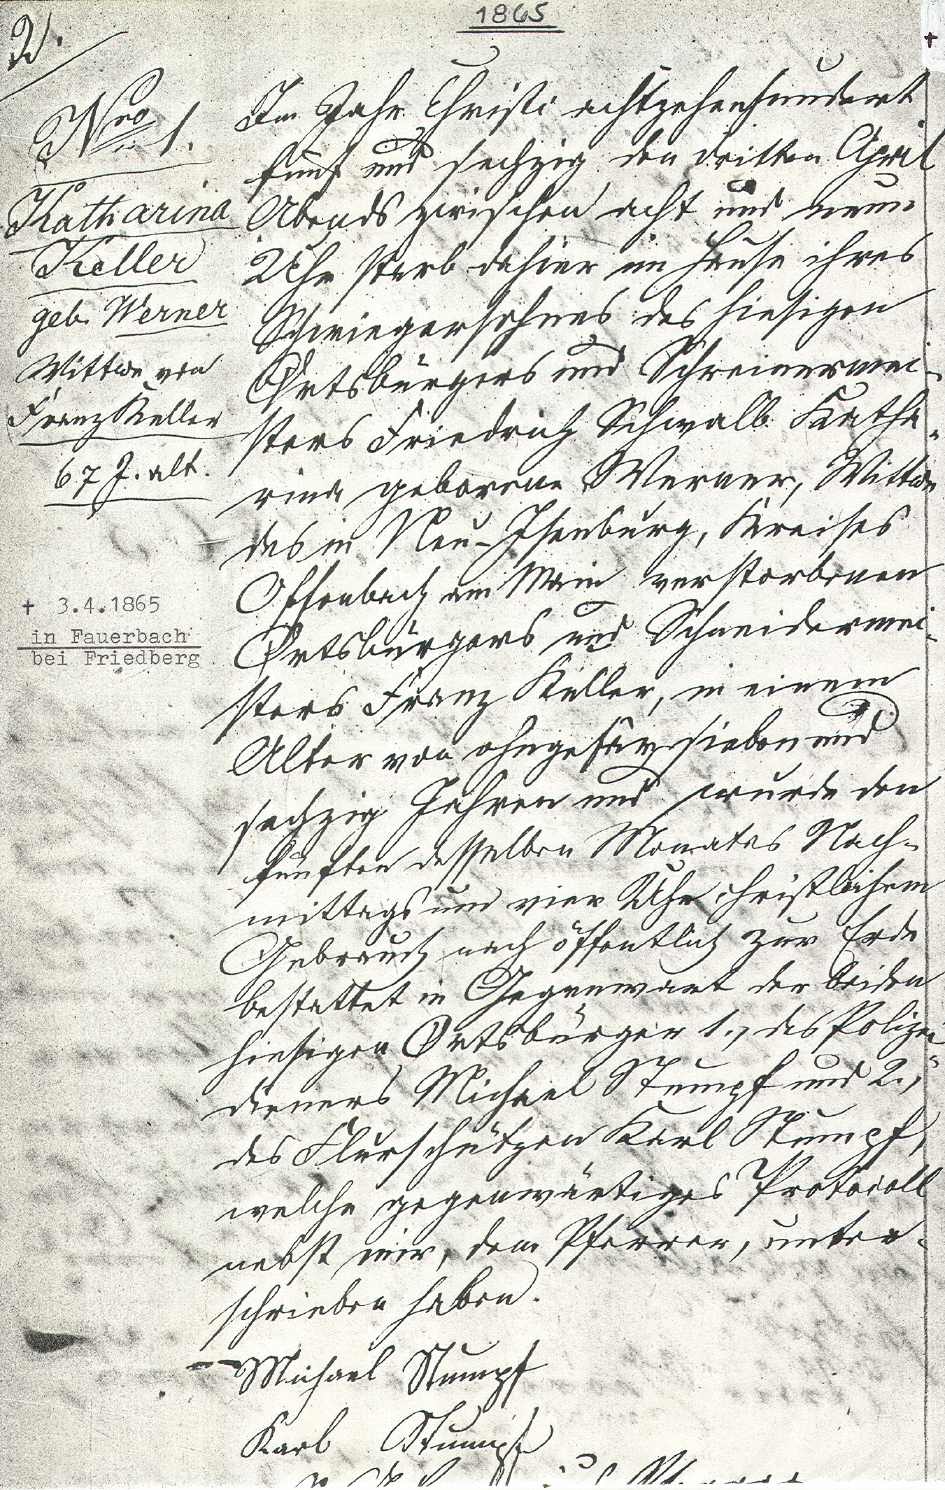 1865
2.
†
Nro 1.
Katharina
Keller
geb. Werner
Wittwe von
Franz Keller
67 J. alt.
† 3.4.1865
in Fauerbach
bei Friedberg
Im Jahr Christi achtzehenhundert
fünf und sechzig den dritten April
Abends zwischen acht und neun
Uhr starb dahier im Hause ihres
Schwiegersohnes des hiesigen
Ortsbürgers und Schreinermei-
sters Friedrich Schwalb Katha-
rina geborene Werner, Wittwe
des in Neu-Isenburg, Kreises
Offenbach am Main verstorbenen
Ortsbürgers und Schneidermei-
sters Franz Keller, in einem
Alter von ohngefär sieben und
sechzig Jahren und wurde den
fünften desselben Monates Nach-
mittags um vier Uhr christlichem
Gebrauch nach öffentlich zur Erde
bestattet in Gegenwart der beiden
hiesigen Ortsbürger 1., des Polizei-
dieners Michael Stumpf und 2.,
des Flurschützen Karl Stumpf,
welche gegenwärtiges Protocoll
nebst mir, dem Pfarrer, unter-
schrieben haben.
Michael Stumpf
Karl Stumpf